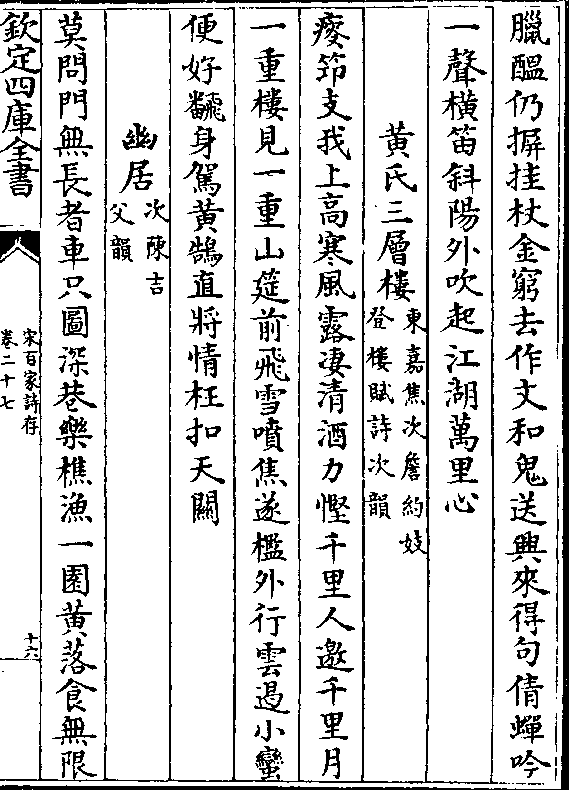 臘醖仍摒挂杖金窮去作文和鬼送興來得句倩蟬吟
一聲橫笛斜陽外吹起江湖萬里心
黄氏三層樓
東嘉焦次詹約妓
登樓賦詩次韻
瘦笻支我上高寒風露凄清酒力慳千里人邀千里月
一重樓見一重山筵前飛雪噴焦遂檻外行雲遏小蠻
便好飜身駕黄鵠直將情枉扣天關
幽居
次陳吉
父韻
莫問門無長者車只圖深巷樂樵漁一園黄落食無限
欽定四庫全書
宋百家詩存
卷二十七
十六